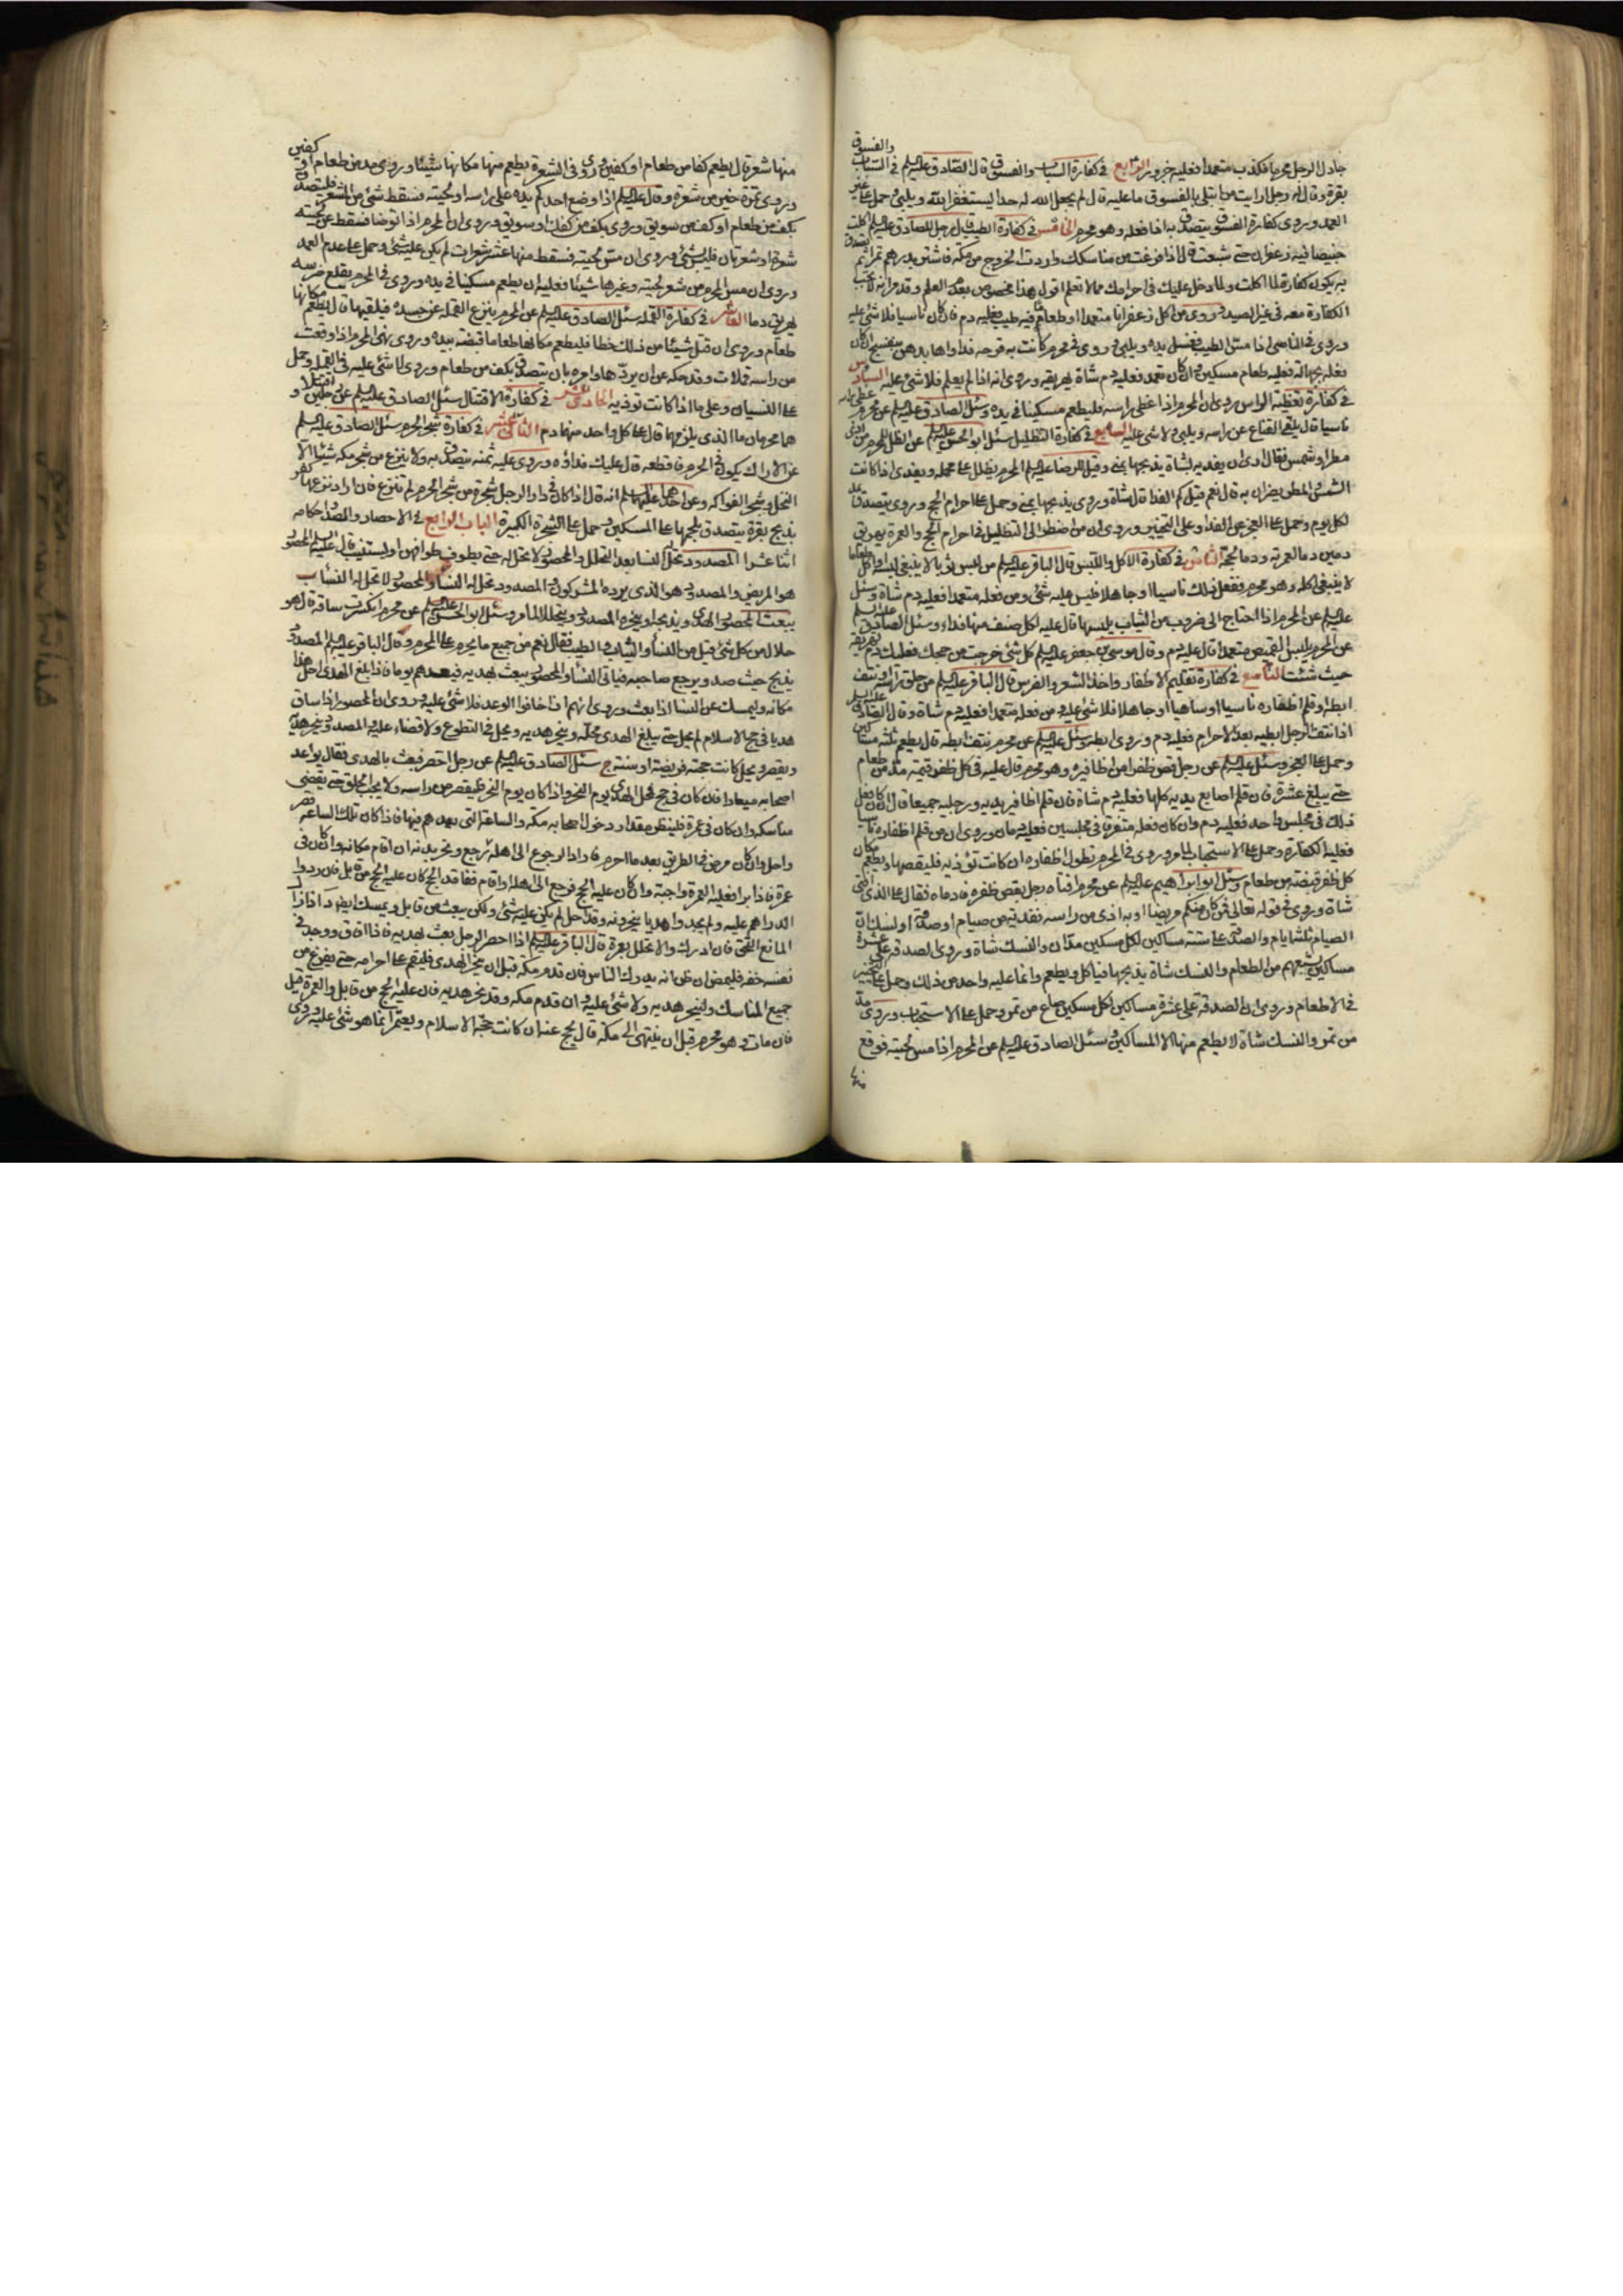 جادل الرجل محرما فكذب متعمدا فعليه جزور الرابع في كفارة السباب والفسوق قال الصادق عليه السلم في السباب والفسوق
بقرة وقال له رجل ارايت من ابتلى بالفسوق ما عليه قال لم يجعل الله له حدا يستغفر الله ويلبي وحمل على غير
العمد وروى كفارة الفسوق يتصدق به اذا فعله وهو محرم الخامس في كفارة الطيب قال رجل للصادق عليه السلم اكلت
خبيصا فيه زعفران حتى شبعت قال اذا فرغت من مناسكك واردت الخروج من مكة فاشتر بدرهم تمرا ثم تصدق
به يكون كفارة لما اكلت ولما دخل عليك في احرامك مما لا تعلم اقول هذا مخصوص بعدم العلم وقد مر انه لا تجب
الكفارة معه في غير الصيد وروى من اكل زعفرانا متعمدا او طعاما فيه طيب فعليه دم فان كان ناسيا فلا شئ عليه
وروى في الناسي اذا مس الطيب فغسل يده ويلبي وروى في محرم كانت به قرحة فداواها بدهن بنفسج ان كان
فعله بجهالة فعليه طعام مسكين وان كان تعمد فعليه دم شاة يهريقه وروى انه اذا لم يعلم فلا شئ عليه السادس
في كفارة تغطية الراس روى ان المحرم اذا غطى راسه فليطعم مسكينا في يده وسئل الصادق عليه السلم عن محرم غطى راسه
ناسيا قال يلقي القناع عن راسه ويلبي ولا شئ عليه السابع في كفارة التظليل سئل ابو الحسن عليه السلم عن الظل للمحرم من اذى
مطر او شمس فقال ارى ان يفديه بشاة يذبحها بمنى وقيل للرضا عليه السلم المحرم يظلل على محمله ويفدي اذا كانت
الشمس والمطر يضران به قال نعم قيل كم الفدا قال شاة وروى يذبحها بمنى وحمل على احرام الحج وروى يتصدق بمد
لكل يوم وحمل على العجز عن الفدا وعلى التخيير وروى ان من اضطر الى التظليل في احرام الحج والعمرة يهريق
دمين دما لعمرته ودما لحجته الثامن في كفارة الاكل واللبس قال الباقر عليه السلم من لبس ثوبا لا ينبغي لبسه واكل طعاما
لا ينبغي اكله وهو محرم ففعل ذلك ناسيا او جاهلا فليس عليه شئ ومن فعله متعمدا فعليه دم شاة وسئل
عليه السلم عن المحرم اذا احتاج الى ضروب من الثياب يلبسها قال عليه لكل صنف منها فداء وسئل الصادق عليه السلم
عن المحرم يلبس القميص متعمدا قال عليه دم وقال موسى بن جعفر عليه السلم كل شئ خرجت من حجك فعليك دم تهريقه
حيث شئت التاسع في كفارة تقليم الاظفار واخذ الشعر والضرس قال الباقر عليه السلم من حلق راسه او نتف
ابطه او قلم اظفاره ناسيا او ساهيا او جاهلا فلا شئ عليه ومن فعله متعمدا فعليه دم شاة وقال الصادق عليه السلم
اذا نتف الرجل ابطيه بعد الاحرام فعليه دم وروى ابطه وسئل عليه السلم عن محرم نتف ابطه قال يطعم ثلثة مساكين
وحمل على العجز وسئل عليه السلم عن رجل قص ظفرا من اظافيره وهو محرم قال عليه في كل ظفر قيمة مد من طعام
حتى يبلغ عشرة فان قلم اصابع يديه كلها فعليه دم شاة فان قلم اظافير يديه ورجليه جميعا قال ان كان فعل
ذلك في مجلس واحد فعليه دم وان كان فعله متفرقا في مجلسين فعليه دمان وروى ان من قلم اظفاره ناسيا
فعليه الكفارة وحمل على الاستحباب لما مر وروى في المحرم تطول اظفاره ان كانت تؤذيه فليقصها ويطعم مكان
كل ظفر قبضة من طعام وسئل ابو ابراهيم عليه السلم عن محرم افتاه رجل بقص ظفره فادماه فقال على الذي افتى
شاة وروى في قوله تعالى فمن كان منكم مريضا او به اذى من راسه ففدية من صيام او صدقة او نسك ان
الصيام ثلثة ايام والصدقة على ستة مساكين لكل مسكين مدان والنسك شاة وروى الصدقة على عشرة
مساكين يشبعهم من الطعام والنسك شاة يذبحها فياكل ويطعم وانما عليه واحد من ذلك وحمل على التخيير
في الاطعام وروى ان الصدقة على عشرة مساكين لكل مسكين صاع من تمر وحمل على الاستحباب وروى مد
من تمر والنسك شاة لا يطعم منها الا المساكين وسئل الصادق عليه السلم عن المحرم اذا مس لحيته فوقع
منها
منها شعر قال يطعم كفا من طعام او كفين وروى في الشعرة يطعم منها مكانها شيئا وروى مد من طعام او كفين
وروى تمرة خير من شعرة وقال عليه السلم اذا وضع احدكم يده على راسه او لحيته فسقط شئ من الشعر فليتصدق
بكف من طعام او كف من سويق وروى بكف من كعك او سويق وروى ان المحرم اذا توضا فسقط عن لحيته
شعرة او شعرتان فليس بشئ وروى ان مس لحيته فسقط منها عشر شعرات لم يكن عليه شئ وحمل على عدم العمد
وروى ان مس المحرم من شعر لحيته وغيرها شيئا فعليه ان يطعم مسكينا في يده وروى في المحرم يقلع ضرسه
يهريق دما العاشر في كفارة القملة سئل الصادق عليه السلم عن المحرم ينزع القملة عن جسده فيلقيها قال يطعم مكانها
طعام وروى ان قتل شيئا من ذلك خطا فليطعم مكانها طعاما قبضة بيده وروى نهى المحرم اذا وقعت
من راسه قملات وقد حكه عن ان يردها وامره بان يتصدق بكف من طعام وروى لا شئ عليه في القملة وحمل
على النسيان وعلى ما اذا كانت تؤذيه الحادي عشر في كفارة الاقتتال سئل الصادق عليه السلم عن رجلين اقتتلا و
هما محرمان ما الذي يلزمهما قال على كل واحد منهما دم الثاني عشر في كفارة شجر الحرم سئل الصادق عليه السلم
عن الاراك يكون في الحرم فاقطعه قال عليك فداؤه وروى عليه ثمنه يتصدق به ولا ينزع من شجر مكة شيئا الا
النخل وشجر الفواكه وعن احدهما عليهما السلم انه قال اذا كان في دار الرجل شجرة من شجر الحرم لم تنزع فان اراد نزعها كفر
بذبح بقرة يتصدق بلحمها على المساكين وحمل على الشجرة الكبيرة الباب الرابع في الاحصار والصد واحكامه
اثنا عشر ا المصدود تحل له النسا بعد التحلل والمحصور لا تحل له حتى يطوف طوافهن او يستنيب قال عليه السلم المحصور
هو المريض والمصدود هو الذي يرده المشركون والمصدود تحل له النسا والمحصور لا تحل له النسا ب
يبعث المحصور الهدي ويذبحه او ينحره المصدود ويتحلل لما مر وسئل ابو الحسن عليه السلم عن محرم انكسرت ساقه قال هو
حلال من كل شئ قيل من النسا والثياب والطيب فقال نعم من جميع ما يحرم على المحرم وقال الباقر عليه السلم المصدود
يذبح حيث صد ويرجع صاحبه فياتي النسا والمحصور يبعث بهديه فيعدهم يوما فاذا بلغ الهدي احل هذا
مكانه وليمسك عن النسا اذا بعث وروى انهم اذا خافوا الوعد فلا شئ عليه وروى ان المحصور اذا ساق
هديا في حج الاسلام لم يحل حتى يبلغ الهدي محله وينحر هديه ويحل في التطوع ولا قضاء عليه والمصدود ينحر هديه
ويقصر ويحل كانت حجته فريضة او سنة ج سئل الصادق عليه السلم عن رجل احصر فبعث بالهدي فقال يواعد
اصحابه ميعادا فان كان في حج فمحل الهدي يوم النحر واذا كان يوم النحر فليقصر من راسه ولا يجب الحلق حتى يقضي
مناسكه وان كان في عمرة فلينظر مقدار دخول اصحابه مكة والساعة التي يعدهم فيها فاذا كان تلك الساعة قصر
واحل وان كان مرض في الطريق بعد ما احرم فاراد الرجوع الى اهله رجع ونحر بدنة ان اقام مكانه وان كان في
عمرة فاذا برا فعليه العمرة واجبة وان كان عليه الحج فرجع الى اهله او اقام ففاته الحج كان عليه الحج من قابل فان ردوا
الدراهم عليه ولم يجدوا هديا ينحرونه وقد احل لم يكن عليه شئ ولكن يبعث من قابل ويمسك ايضا د اذا زال
المانع التحق فان ادرك والا تحلل بعمرة قال الباقر عليه السلم اذا احصر الرجل بعث بهديه فاذا افاق ووجد في
نفسه خفة فليمض ان ظن انه يدرك الناس فان قدم مكة قبل ان ينحر الهدي فليقم على احرامه حتى يفرغ من
جميع المناسك ولينحر هديه ولا شئ عليه وان قدم مكة وقد نحر هديه فان عليه الحج من قابل والعمرة قيل
فان مات وهو محرم قبل ان ينتهي الى مكة قال يحج عنه ان كانت حجة الاسلام ويعتمر انما هو شئ عليه وروى